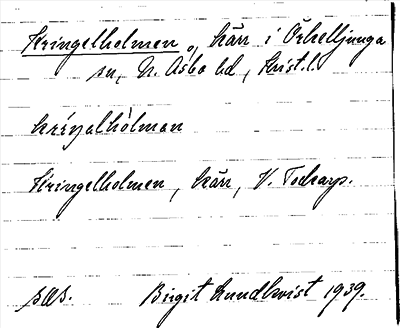 Kringelholmen, kärr i Örkelljunga
sn, N. Åsbo hd, Krist. l.
Kringelholmen, kärr, V. Todarp.
sås. Birgit Lundkvist 1939.